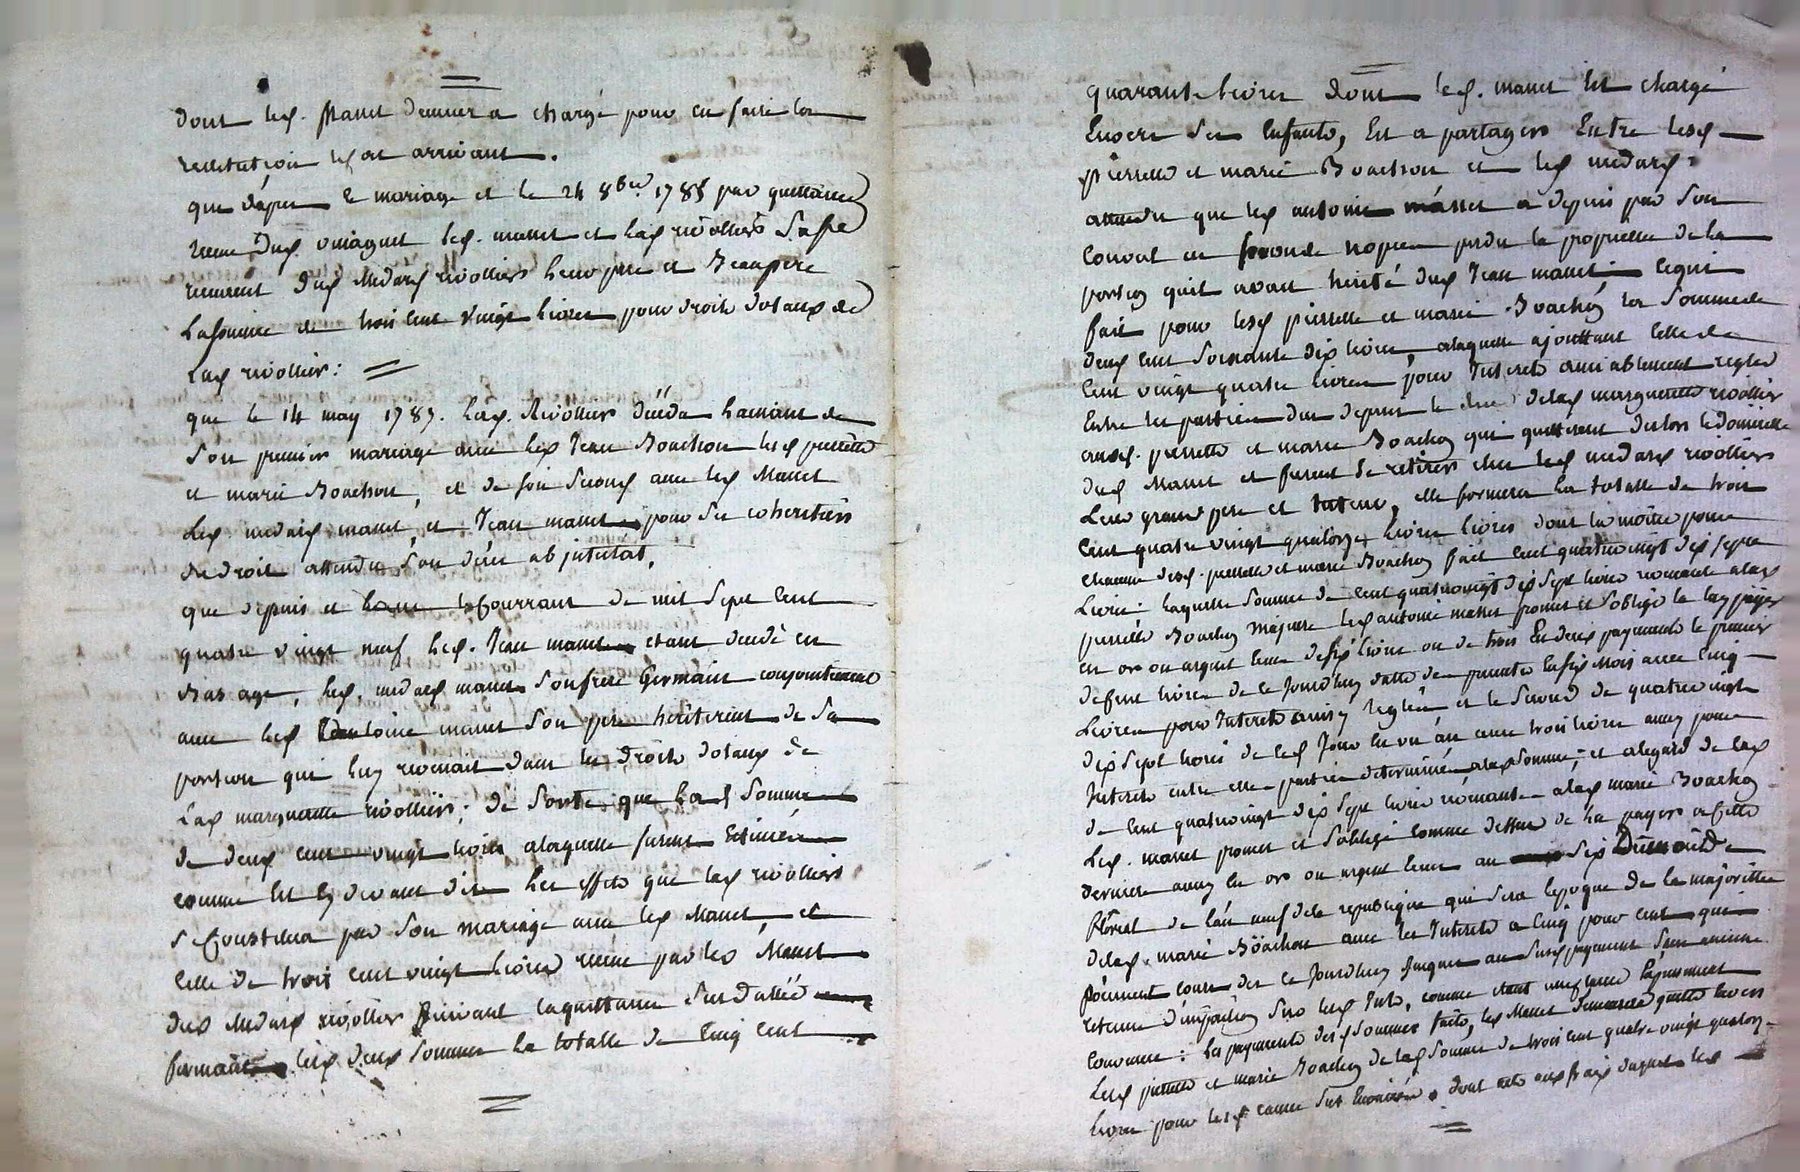 dont led. Manet demeura chargé pour en faire la
restitution le cas arrivant.
que dáprès le mariage et le 24 8bre 1785 par quittance
recue Dud. led. manet et lad rivolliers Sa fe
recurent dud Medard rivolliers leur pere et Beaupere
La somme de trois cent vingt livres pour droits dotaux de
Lad rivollier:
que le 14 may 1787. lad. Rivolliers décéda laissant de
Son premier mariage avec led Jean Boachon lesd pierrette
et marie Boachon, et de son second avec led Manet
Led medard manet, et Jean manet pour ses coheritiers
de droit attendu son décé ab intestat.
que depuis et le Courrant de mil sept cent
quatre vingt neuf led. Jean manet etant decedé en
bas age, led. medard manet son frere Germain conjointement
avec led antoine manet son pere heriterent de sa
portion qui luy revenait dans les droits dotaux de
Lad marguerite rivolliers; de sorte que lad somme
de deux cent vingt livres alaquelle furent Estimés
comme est cy devant dit les effets que lad rivolliers
se Constitua par son mariage avec led Manet et
celle de trois cent vingt livres recue par led Manet
dud Medard rivollier suivant la quittance sus dattée
formant lesd deux sommes la totalle de Cinq cent
quarante livres dont led. manet est chargé
Envers ses Enfants, Est a partager Entre lesd
pierrette et marie Boachon et led medard.
attendu que led antoine manet a depuis par son
Convol en seconde nopces perdu la proprieté de la
portion quil avait hérité dud Jean manet ce qui
fait pour lesd pierrette et marie Boachon la somme de
deux cent soixante dix livres, alaquelle ajouttant celle de
cent vingt quatre livres pour Interets amiablement reglés
Entre les parties dus depuis le décé delad marguerite rivollier
auxd. pierrette et marie Boachon qui quitterent des lors le domicille
dud Manet et furent se retirer chez led medard rivolliers
Leur grand pere et tuteur, elle formera la totalle de trois
cent quatre vingt quatorze livres dont la moitié pour
chacune desd. pierrette et marie Boachon fait cent quatre vingt dix sept
Livres: laquelle somme de cent quatrevingt dix sept livres revenante alad
pierrette Boachon majeure led antoine manet promet et s'oblige de la luy payer
en or ou argent de six livres ou de trois En deux payements le premier
de cent livres de ce jourdhuy datte des presentes En six Mois avec cinq
Livres pour Interets ainsy reglés et le second de quatre vingt
dix sept livres de ced Jour en un an avec trois livres aussy pour
Interets entre elles parties determinés; et alegard de lad
de cent quatrevingt dix sept livres revenante alad marie Boachon
Led. manet promet et s'oblige comme dessus de la payer a cette
derniere aussy en or ou argent au six
floreal de lan neuf de la republique qui sera lepoque de la majorité
delad. marie Boachon avec les Interets a cinq pour cent qui
courir des ce Jourdhuy jusques au susd payement sans aucune
retenue d'imposition sur lesd Ints, comme etant
convenue: les payements desd sommes faits, led Manet demeurera quitte envers
Lesd pierrette et marie Boachon de lad somme de trois cent quatre vingt quatorze
Livres pour les causes sus Enoncées. dont acte aux frais dudit led